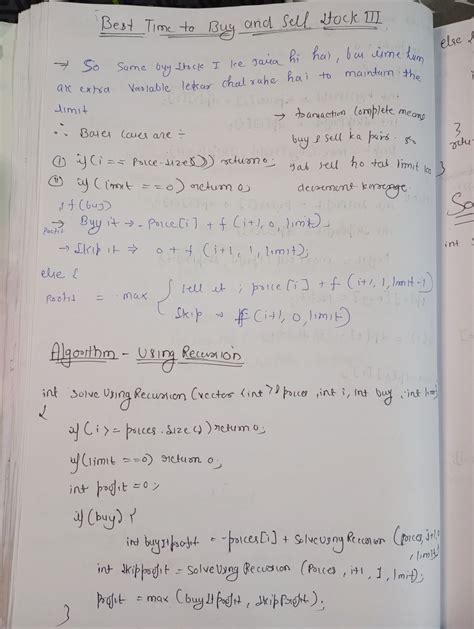 Best Time to Buy and Sell Stock III
→ So Same buy stock I ke jaisa hi hai, bas isme hum
ak extra variable lekar chal rahe hai to maintain the
limit
→ transaction complete means
∴ Base Cases are ÷
buy & sell ka pair. so
(i) if (i == Price.size()) return 0;
jab sell ho tab limit ko
(ii) if (limit == 0) return 0;
decrement karenge
if (buy)
→ Buy it → - price[i] + f (i+1, 0, limit),
Profit
→ Skip it ⇒ 0 + f (i+1, 1, limit);
else {
Profit = max { sell it ; price[i] + f (i+1, 1, limit-1)
Skip → f (i+1, 0, limit)
Algorithm - Using Recursion
int solveUsingRecursion (vector <int>& prices, int i, int buy, int limit)
{
if (i >= prices.size()) return 0;
if (limit == 0) return 0;
int profit = 0;
if (buy) {
int buyItprofit = -prices[i] + solveUsingRecursion (prices, i+1, 0
, limit)
int skipprofit = solveUsingRecursion (prices, i+1, 1, limit);
profit = max (buyItprofit, skipProfit);
}
else
}
retur
So
int